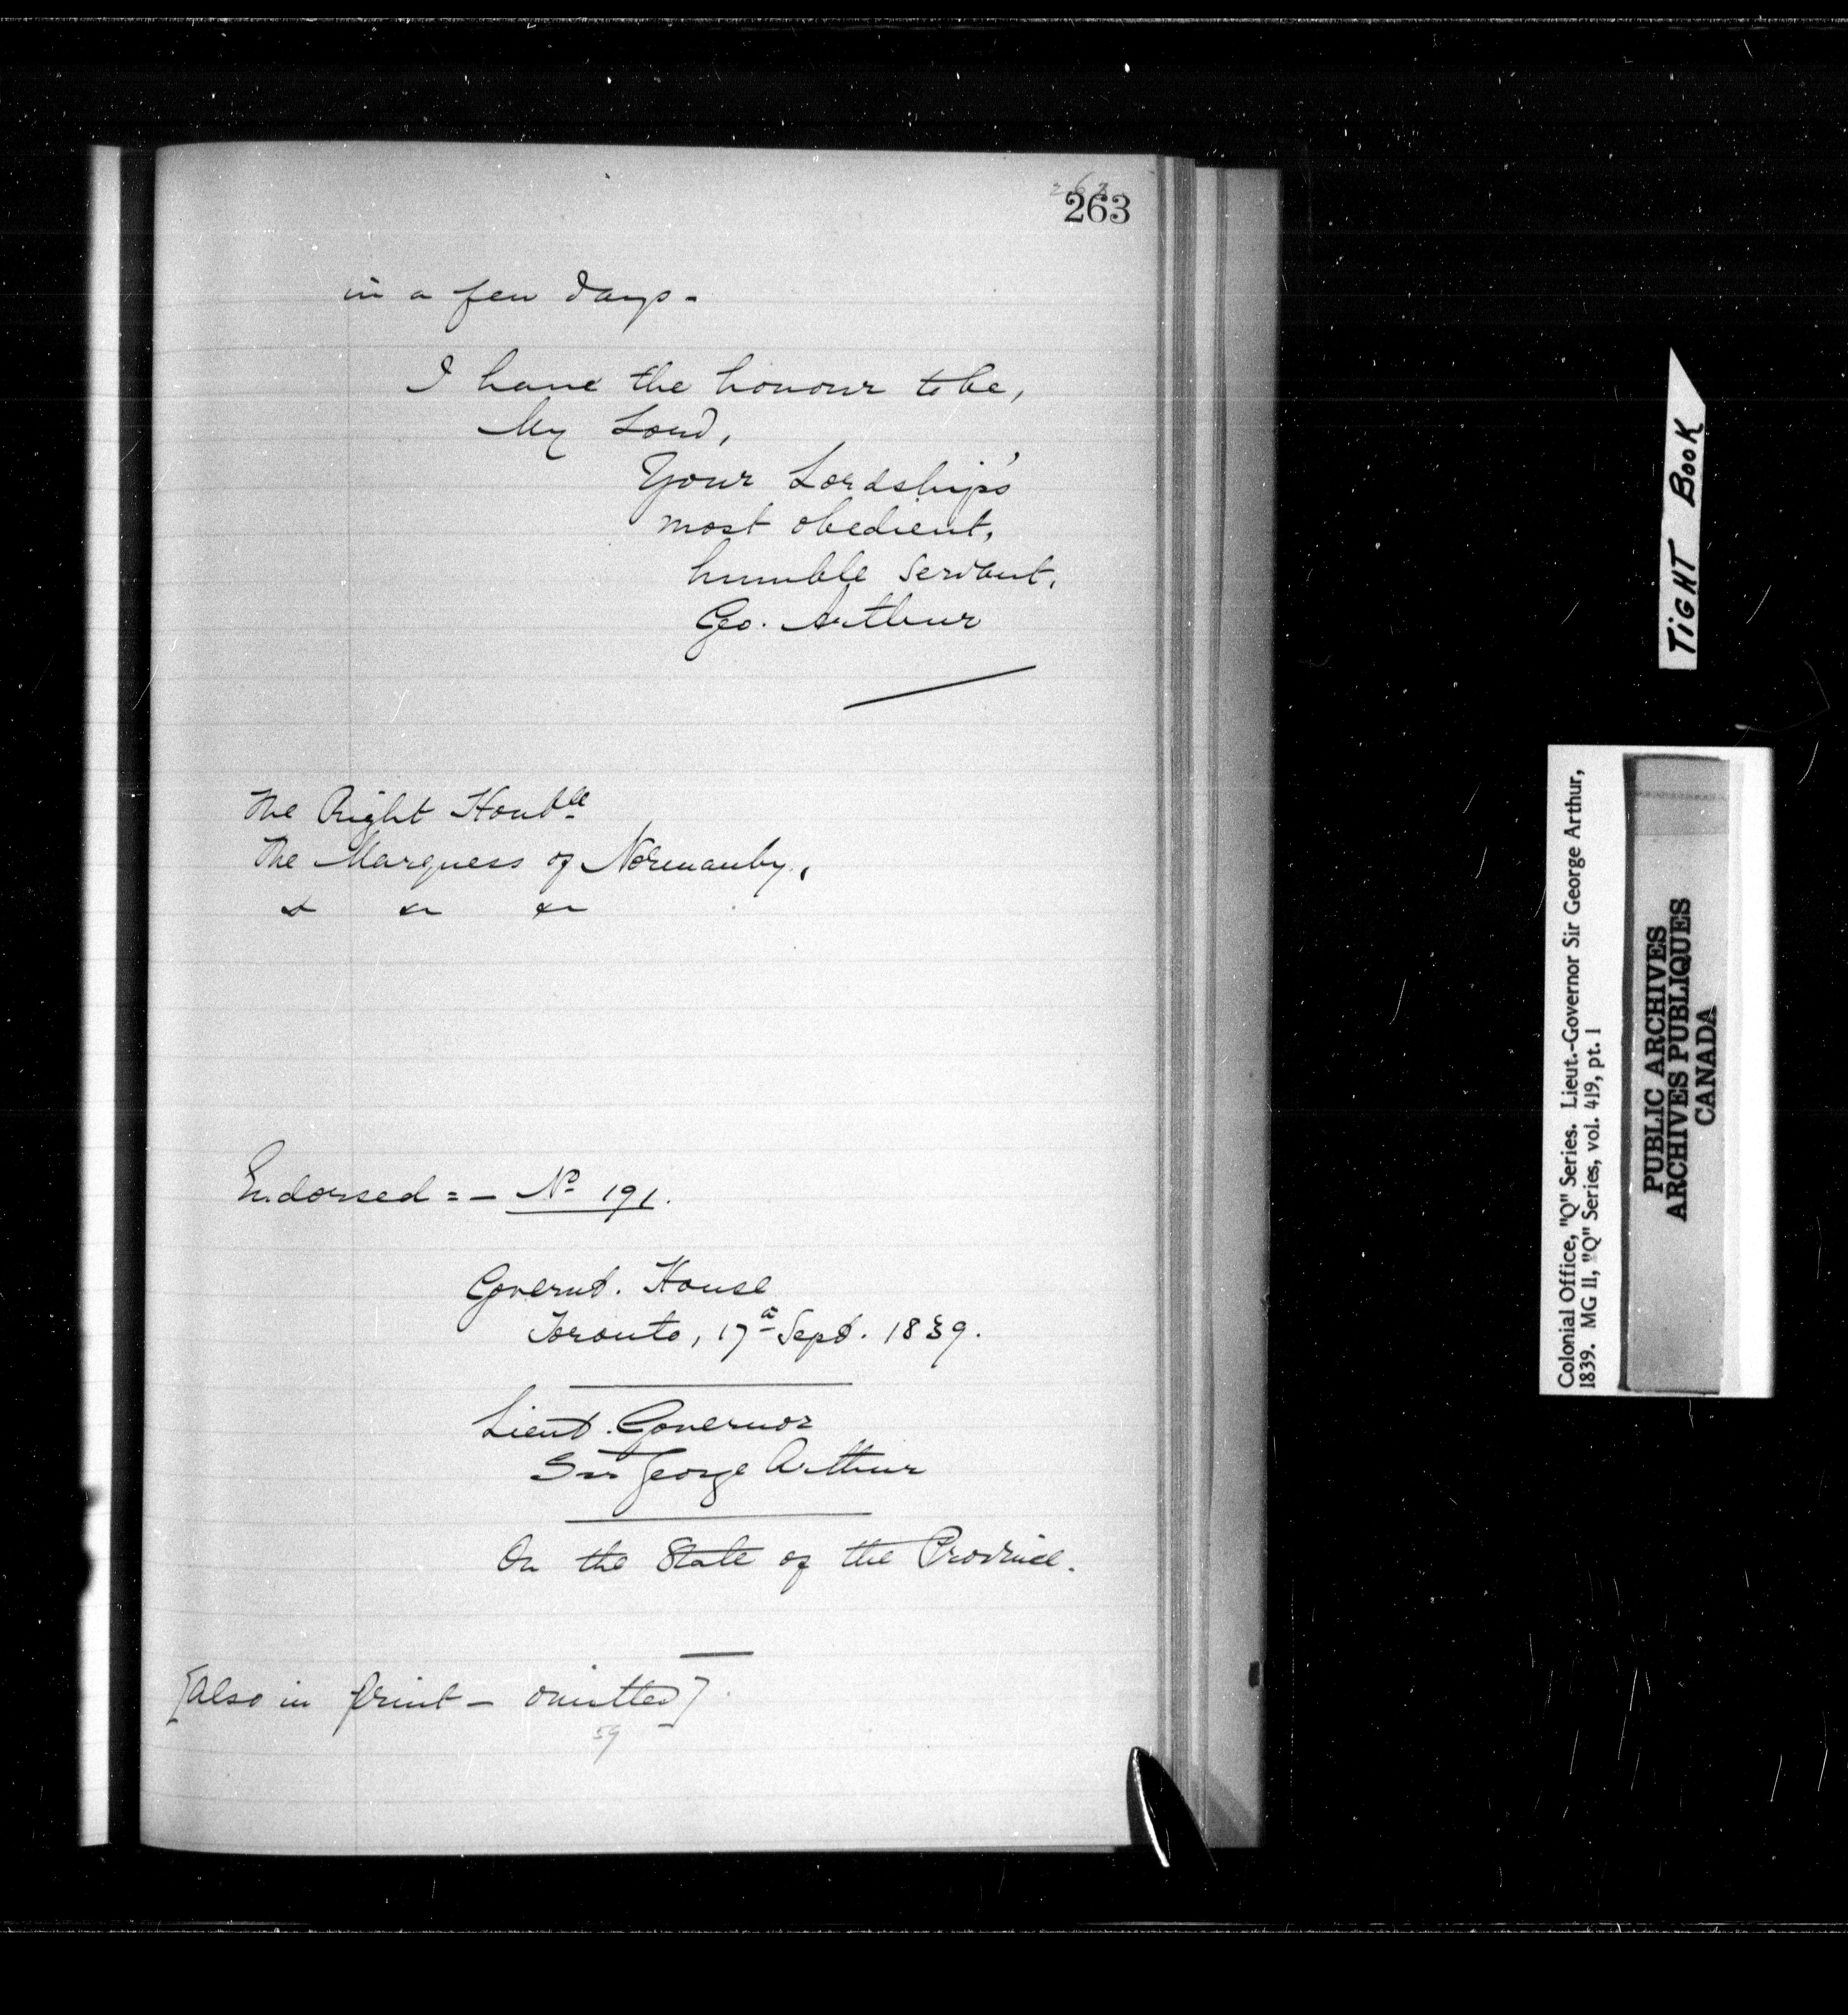 263
in a few days -
I have the honour to be,
My Lord,
Your Lordship's
most obedient,
humble servant,
Geo. Arthur
The Right Honble
The Marquess of Normanby,
& &c &c
Endorsed = - No 191.
Governt. House
Toronto, 17th Sept. 1839.
Lieut. Governor
Sir George Arthur
On the State of the Province.
[Also in print - omitted].
59
TIGHT BOOK
Colonial Office, "Q" Series. Lieut.-Governor Sir George Arthur,
1839. MG 11, "Q" Series, vol. 419, pt. 1
PUBLIC ARCHIVES
ARCHIVES PUBLIQUES
CANADA